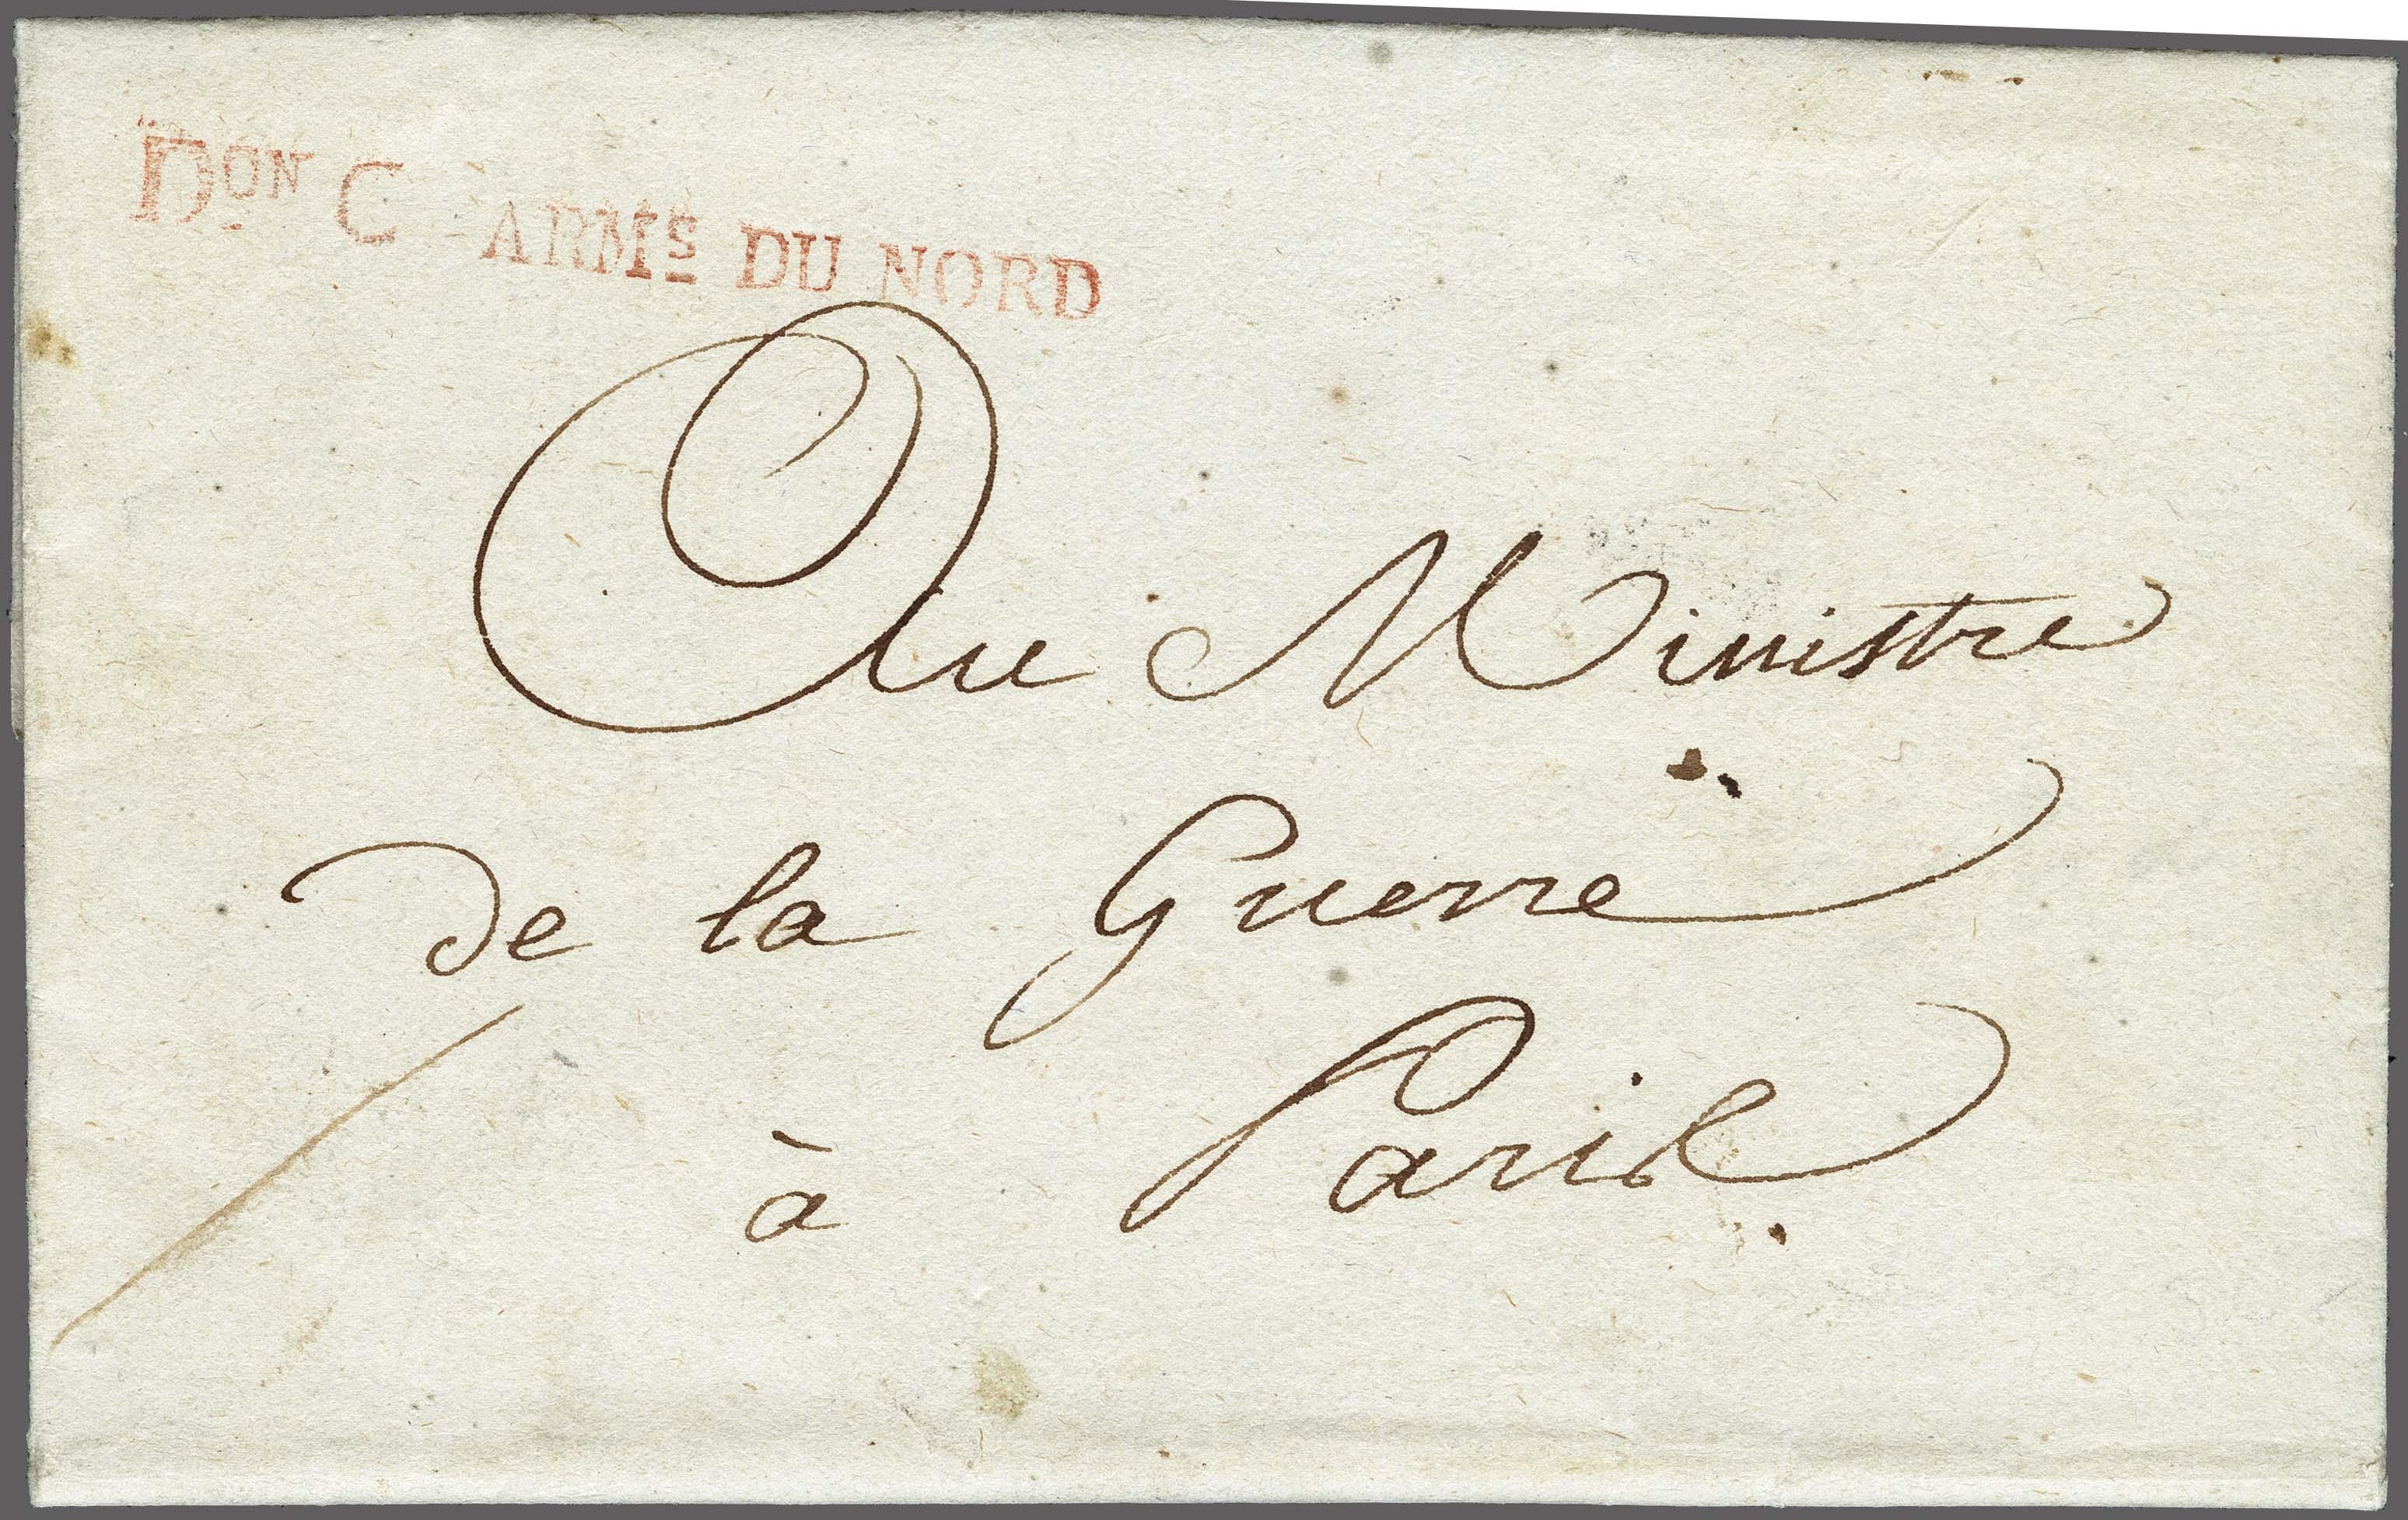 DON C ARMS DU NORD
Au Ministre
De la Guerre
à Paris